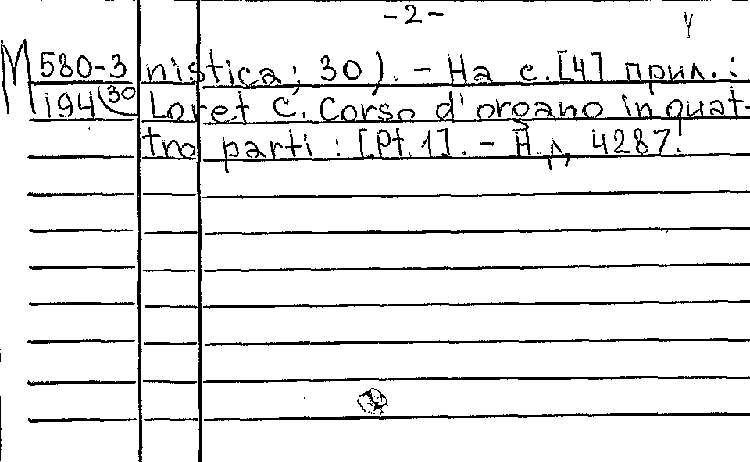 -2-
М 580-3 nistica; 30). - На с. [4] прил.:
194(30 Loret C. Corso d'organo in quat-
tro parti: [Pt. 1]. - Н. д. 4287.